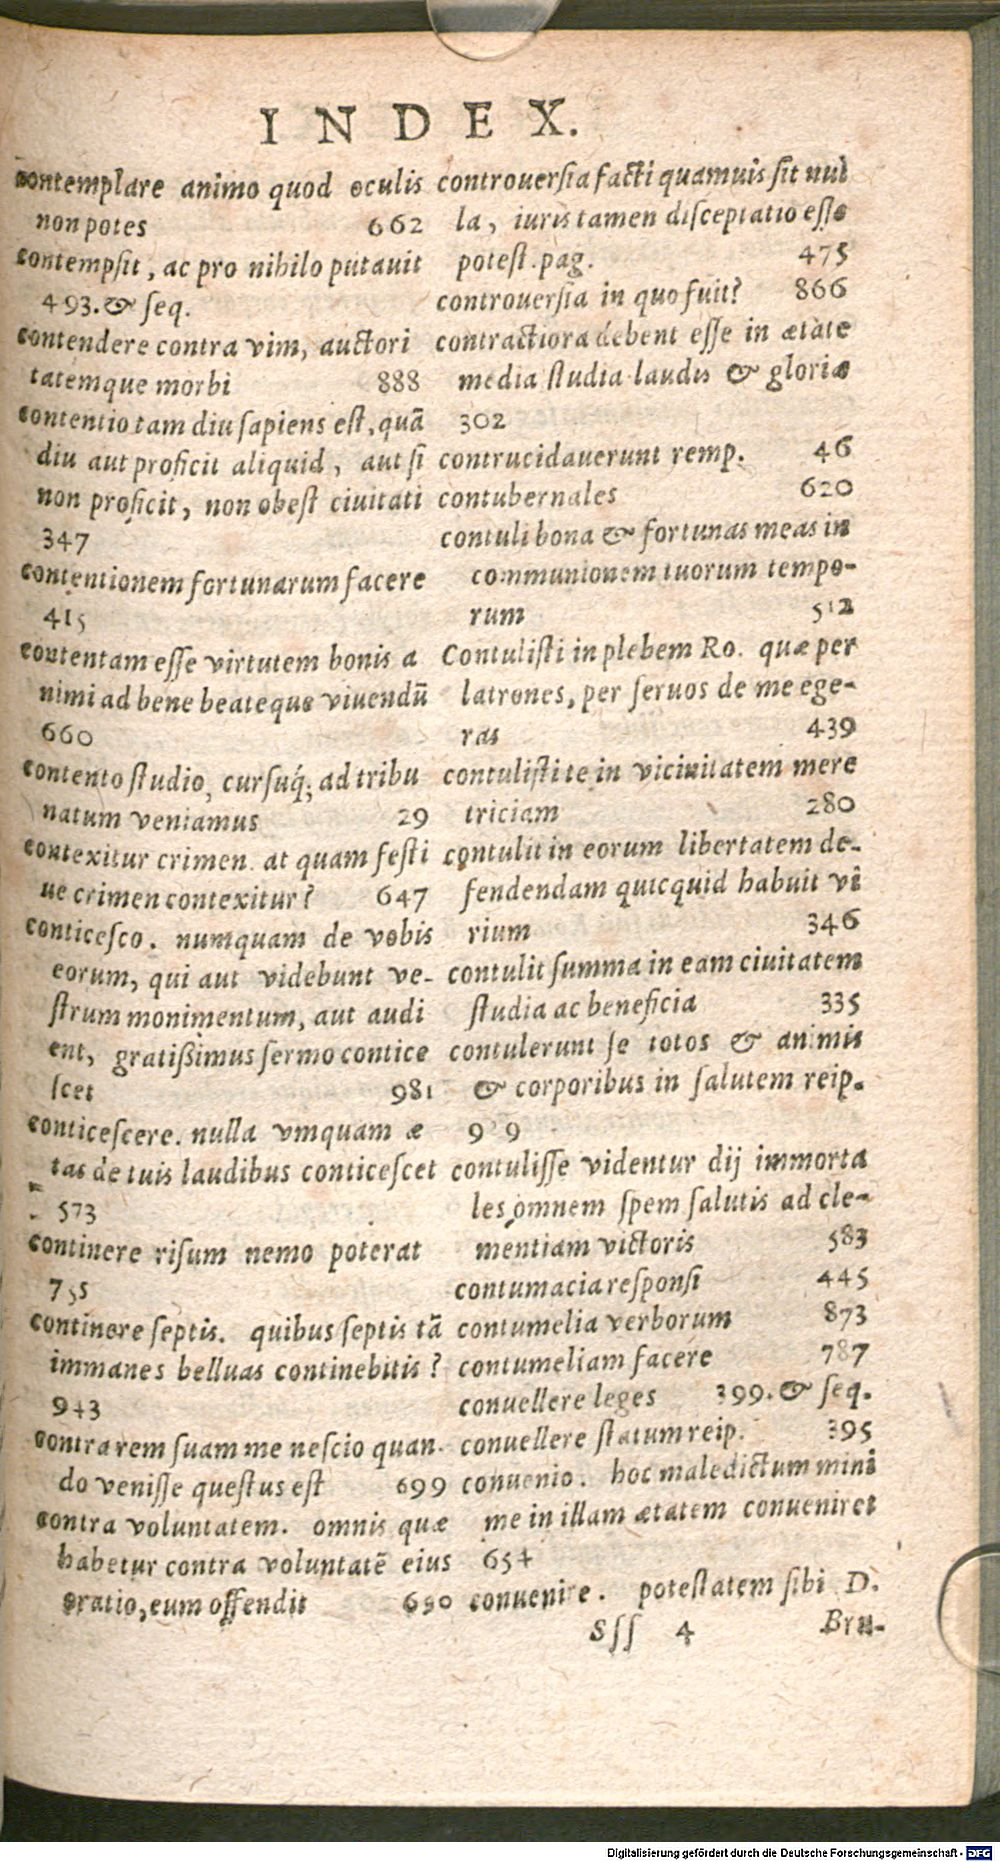 INDEX.
contemplare animo quod oculis
non potes 662
contempsit, ac pro nihilo putauit
493. & seq.
contendere contra vim, auctori
tatemque morbi 888
contentio tam diu sapiens est, quã
diu aut proficit aliquid, aut si
non proficit, non obest ciuitati
347
contentionem fortunarum facere
415
contentam esse virtutem bonis a
nimi ad bene beateque viuendũ
660
contento studio, cursuq́; ad tribu
natum veniamus 29
contexitur crimen. at quam festi
ue crimen contexitur? 647
conticesco. numquam de vobis
eorum, qui aut videbunt ve-
strum monimentum, aut audi
ent, gratißimus sermo contice
scet 981
conticescere. nulla vmquam æ
tas de tuis laudibus conticescet
573
continere risum nemo poterat
735
continere septis. quibus septis tã
immanes belluas continebitis?
943
contra rem suam me nescio quan-
do venisse questus est 699
contra voluntatem. omnis quæ
habetur contra voluntatẽ eius
oratio, eum offendit 690
controuersia facti quamuis sit nul
la, iuris tamen disceptatio esse
potest. pag. 475
controuersia in quo fuit? 866
contractiora debent esse in ætate
media studia laudis & gloriæ
302
contrucidauerunt remp. 46
contubernales 620
contuli bona & fortunas meas in
communionem tuorum tempo-
rum 512
Contulisti in plebem Ro. quæ per
latrones, per seruos de me ege-
ras 439
contulisti te in viciuitatem mere
triciam 280
contulit in eorum libertatem de-
fendendam quicquid habuit vi
rium 346
contulit summa in eam ciuitatem
studia ac beneficia 335
contulerunt se totos & animis
& corporibus in salutem reip.
9 9
contulisse videntur dij immorta
les omnem spem salutis ad cle-
mentiam victoris 583
contumacia responsi 445
contumelia verborum 873
contumeliam facere 787
conuellere leges 399. & seq.
conuellere statum reip. 395
conuenio. hoc maledictum mini
me in illam ætatem conueniret
654
conuenire. potestatem sibi D.
Sss 4 Bru-
Digitalisierung gefördert durch die Deutsche Forschungsgemeinschaft - DFG